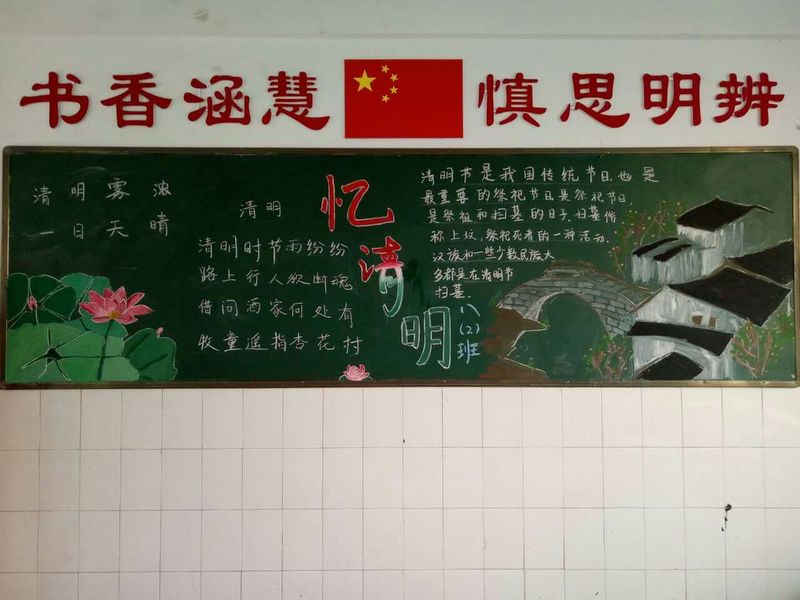 书香涵慧 慎思明辨
清明雾浓
一日天晴
清明
清明时节雨纷纷
路上行人欲断魂
借问酒家何处有
牧童遥指杏花村
忆清明
八(2)班
清明节是我国传统节日,也是
最重要的祭祀节日是祭祀节日,
是祭祖和扫墓的日子,扫墓俗
称上坟,祭祀死者的一种活动.
汉族和一些少数民族大
多都是在清明节
扫墓.